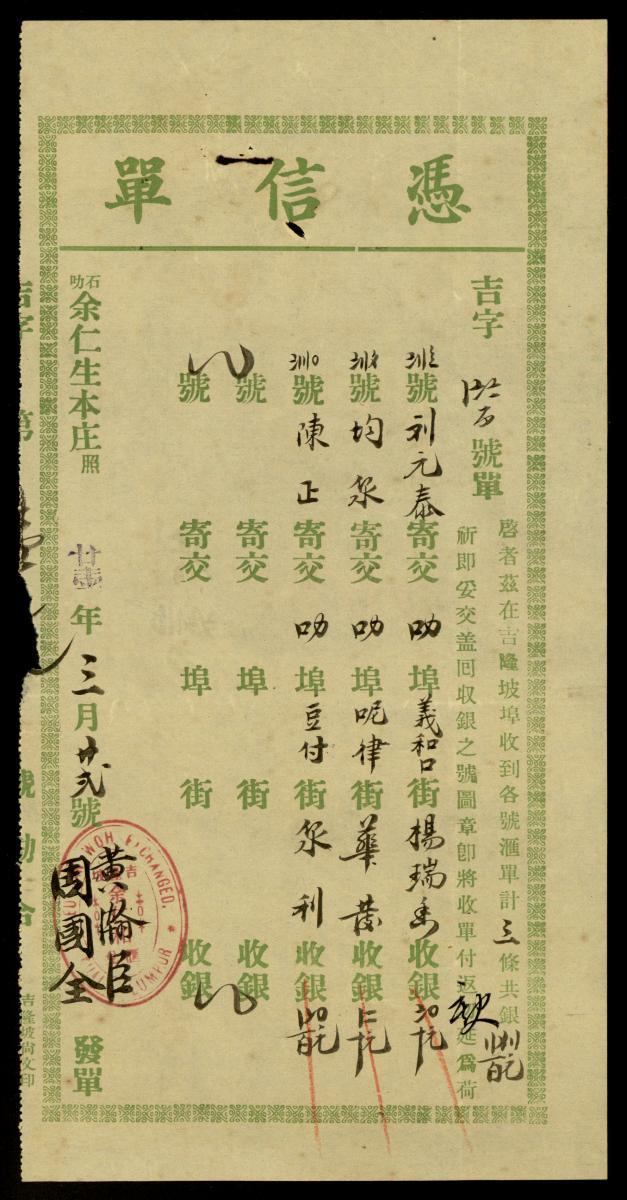 憑信單
吉字 號單
啓者茲在吉隆坡埠收到各號滙單計三條共銀
祈即妥交盖回收銀之號圖章卽將收單付返 延爲荷
號利元泰寄交叻埠義和口街楊瑞 收銀
號均泉寄交叻埠呢律街華茂收銀
號陳正寄交叻埠豆付街泉利收銀
號 寄交 埠 街 收銀
號 寄交 埠 街 收銀
石叻余仁生本庄照
廿 年三月廿弍號
發單
黃 臣
周國全
WOH EXCHANGED.
LUMPUR
吉字 第
號 合
吉隆坡尚文印